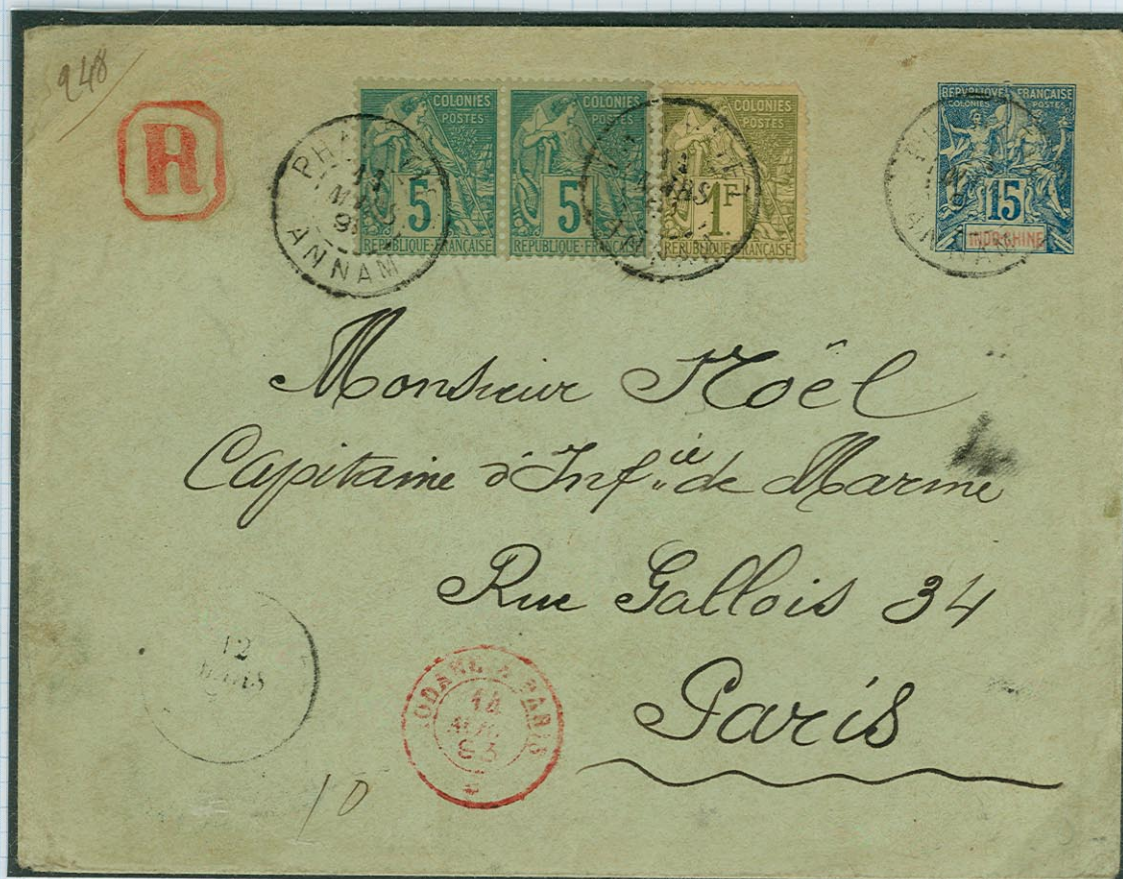 248
R
COLONIES
POSTES
5
REPUBLIQUE-FRANÇAISE
COLONIES
POSTES
5
REPUBLIQUE-FRANÇAISE
COLONIES
POSTES
1F
REPUBLIQUE-FRANÇAISE
REPUBLIQUE FRANÇAISE
COLONIES POSTES
15
INDO-CHINE
11
MARS
ANNAM
Monsieur Noël
Capitaine d'Inf.ie de Marine
Rue Gallois 34
Paris
12
MARS
PARIS
14
93
10